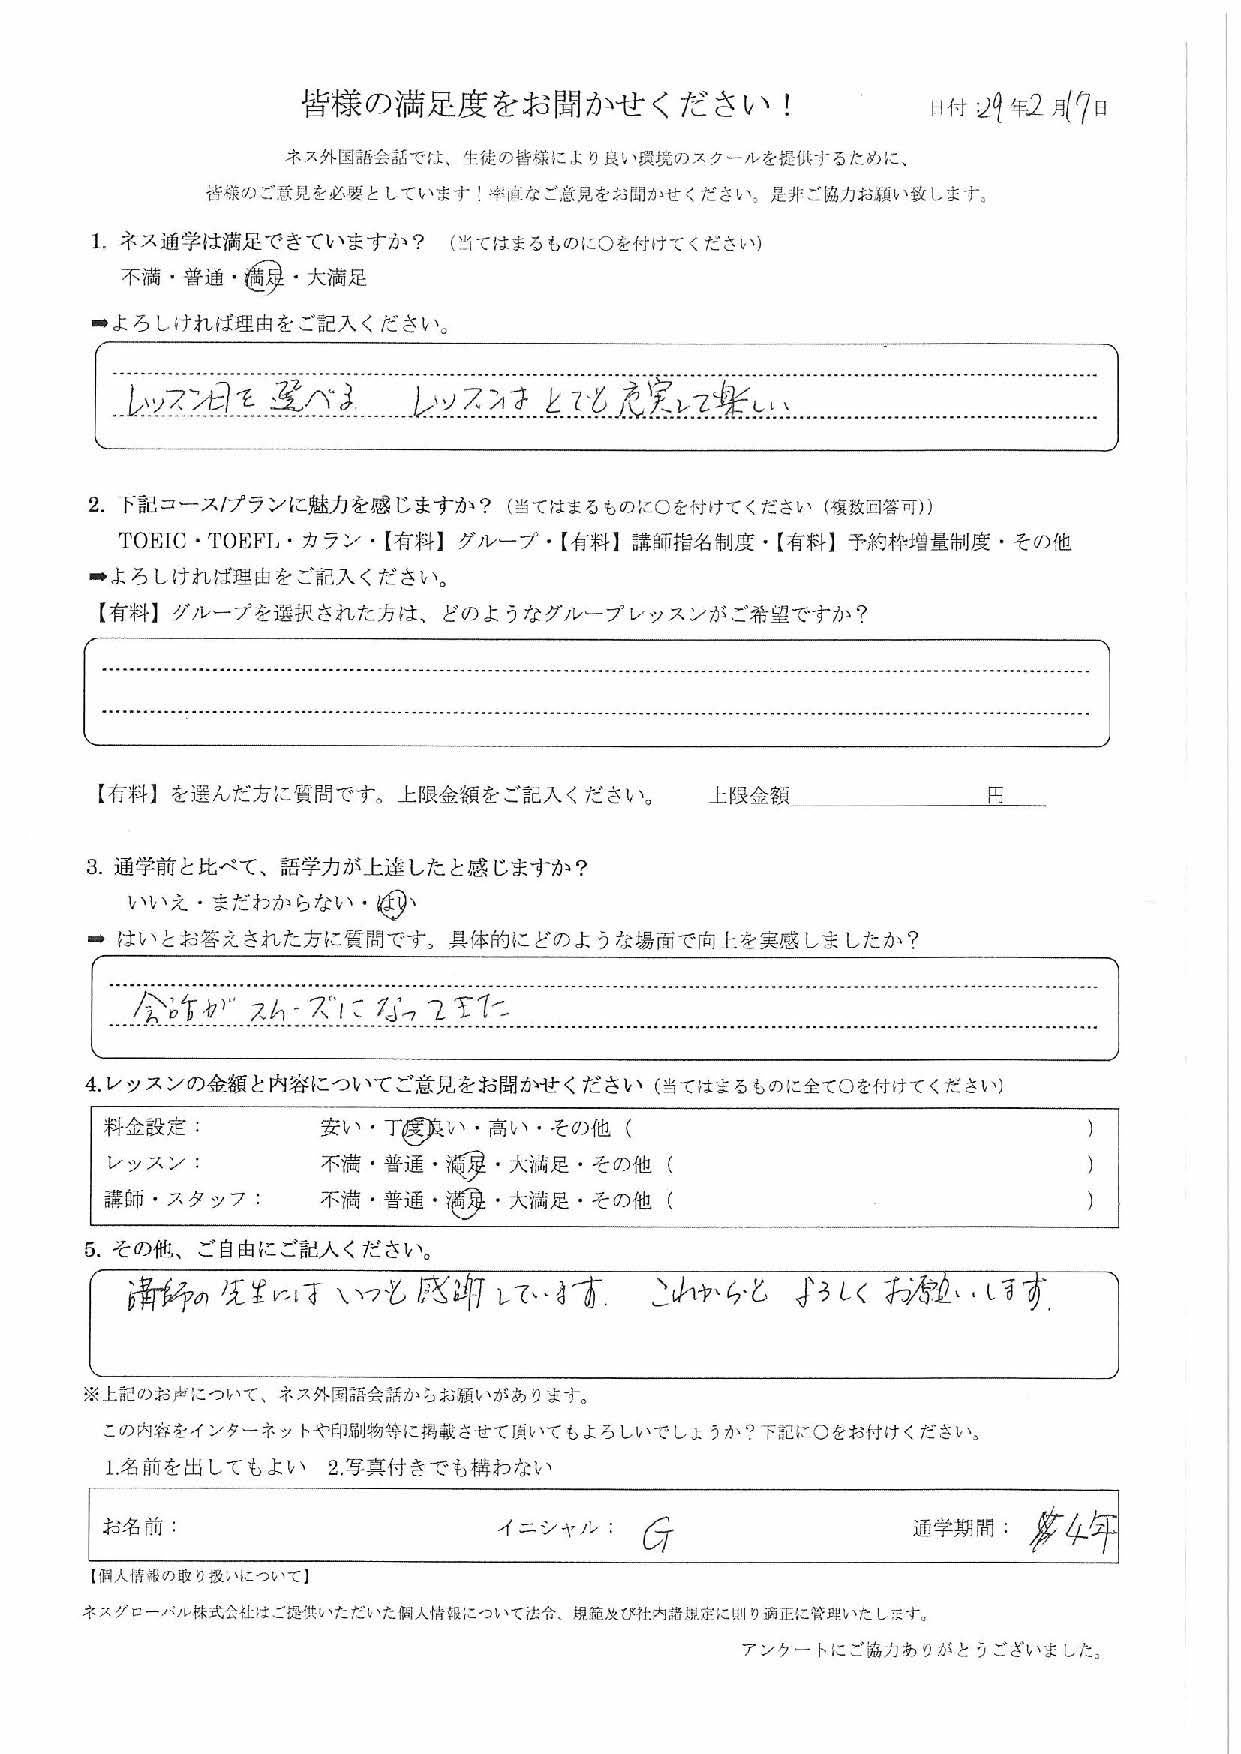 皆様の満足度をお聞かせください！
日付 : 29年2月17日
ネス外国語会話では、生徒の皆様により良い環境のスクールを提供するために、
皆様のご意見を必要としています！率直なご意見をお聞かせください。是非ご協力お願い致します。
1. ネス通学は満足できていますか？ （当てはまるものに〇を付けてください）
不満・普通・満足・大満足
➡よろしければ理由をご記入ください。
レッスン日を選べま レッスンはとても充実して楽しい
2. 下記コース/プランに魅力を感じますか？（当てはまるものに〇を付けてください（複数回答可））
TOEIC・TOEFL・カラン・【有料】グループ・【有料】講師指名制度・【有料】予約枠増量制度・その他
➡よろしければ理由をご記入ください。
【有料】グループを選択された方は、どのようなグループレッスンがご希望ですか？
【有料】を選んだ方に質問です。上限金額をご記入ください。 上限金額 円
3. 通学前と比べて、語学力が上達したと感じますか？
いいえ・まだわからない・はい
➡ はいとお答えされた方に質問です。具体的にどのような場面で向上を実感しましたか？
会話がスムーズになってきた
4.レッスンの金額と内容についてご意見をお聞かせください（当てはまるものに全て〇を付けてください）
料金設定： 安い・丁度良い・高い・その他（ ）
レッスン： 不満・普通・満足・大満足・その他（ ）
講師・スタッフ： 不満・普通・満足・大満足・その他（ ）
5. その他、ご自由にご記入ください。
講師の先生にはいつも感謝しています. これからも よろしくお願いします.
※上記のお声について、ネス外国語会話からお願いがあります。
この内容をインターネットや印刷物等に掲載させて頂いてもよろしいでしょうか？下記に〇をお付けください。
1.名前を出してもよい 2.写真付きでも構わない
お名前： イニシャル： G 通学期間： 4年
【個人情報の取り扱いについて】
ネスグローバル株式会社はご提供いただいた個人情報について法令、規範及び社内諸規定に則り適正に管理いたします。
アンケートにご協力ありがとうございました。